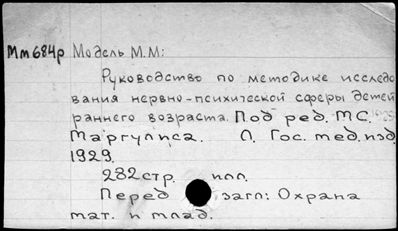 Мм684р Модель М.М:
Руководство по методике исследо
вания нервно-психической сферы детей
раннего возраста. Под ред. М.С.
Маргулиса. Л. Гос. мед. изд.
1929.
282 стр. илл.
Перед загл: Охрана
мат. и млад.